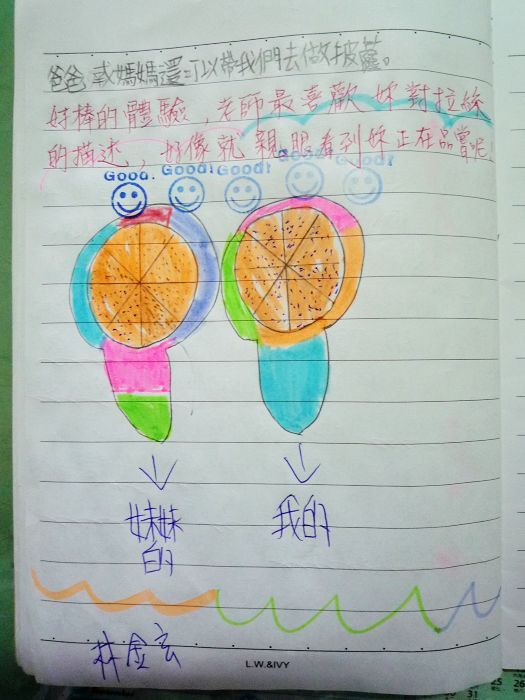 爸爸或媽媽還可以帶我們去做披薩。
好棒的體驗,老師最喜歡妳對拉絲
的描述,好像就親眼看到妳正在品嘗呢!
Good. Good! Good! Good! Good!
妹妹的
我的
林金玄
L.W.&IVY
25
26
31